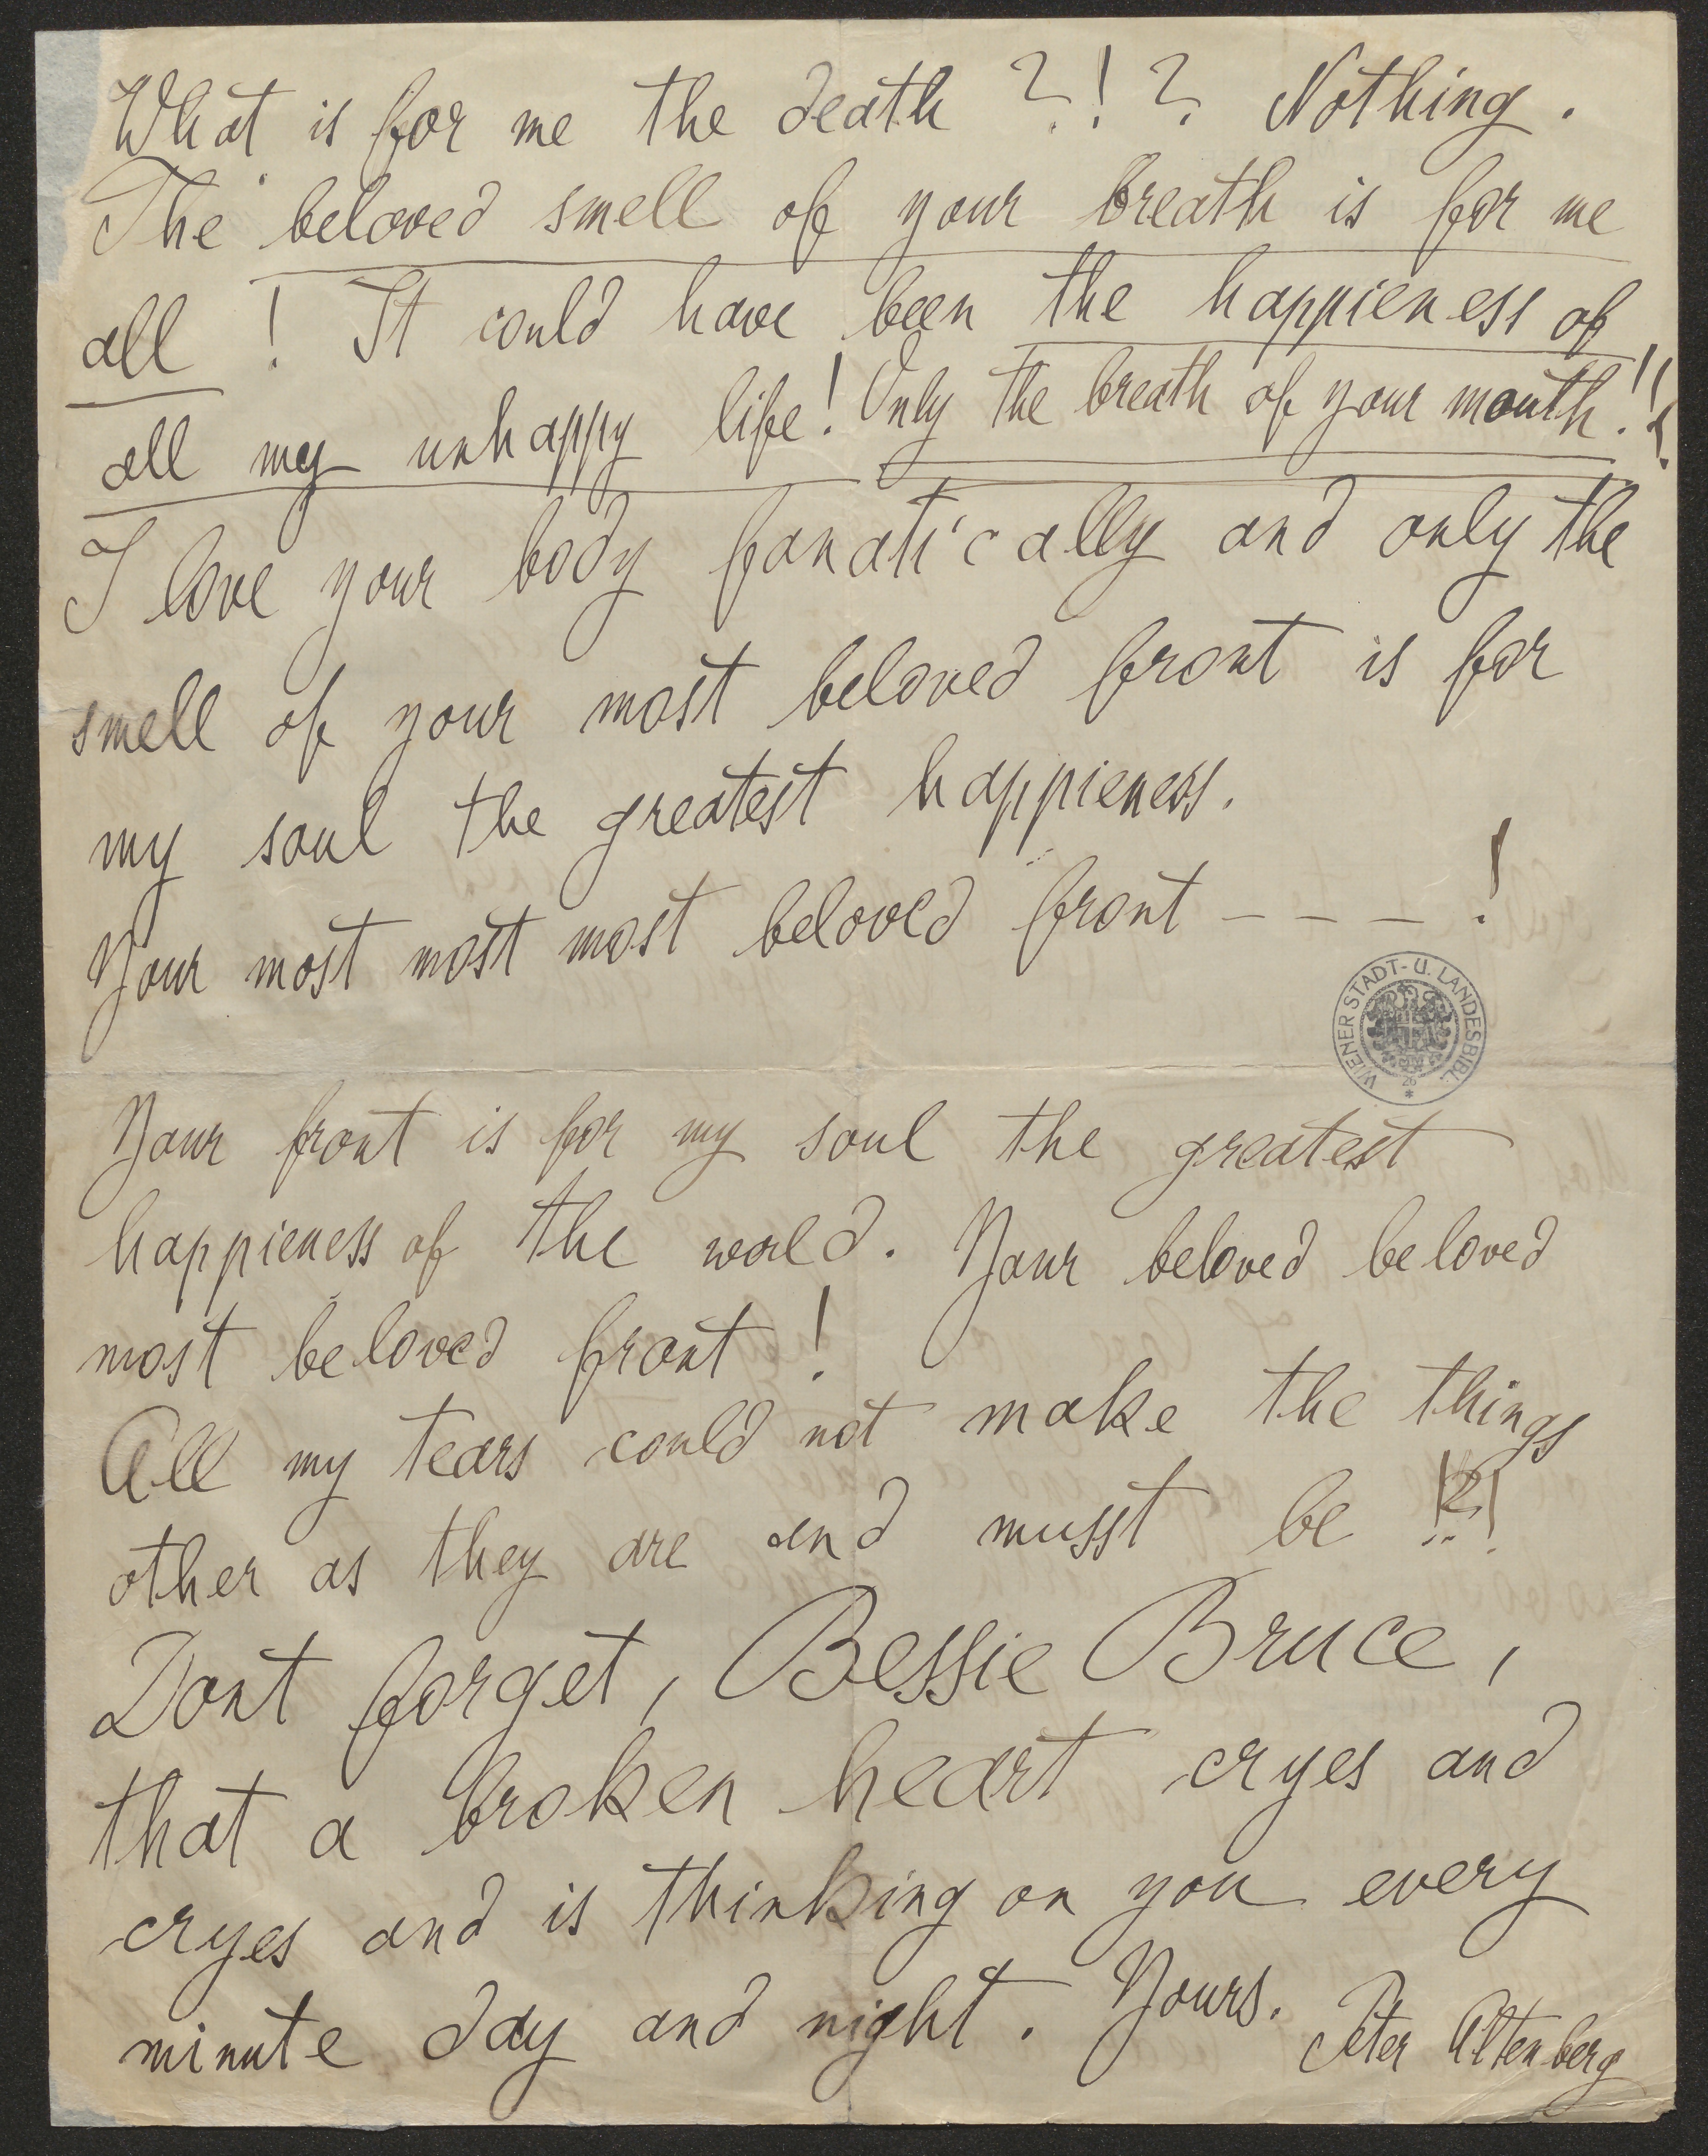 What is for me the death ?!? Nothing.
The beloved smell of your breath is for me
all ! It could have been the happieness of
all my unhappy life! Only the breath of your mouth!!
I love your body fanatically and only the
smell of your most beloved front is for
my soul the greatest happieness.
Your most most most beloved front – – – !
WIENER STADT- U. LANDESBIBL.
Your front is for my soul the greatest
happieness of the world. Your beloved beloved
most beloved front !
All my tears could not make the things
other as they are and musst be !?!
Dont forget, Bessie Bruce,
that a broken heart cryes and
cryes and is thinking on you every
minute day and night. Yours.
Peter Altenberg